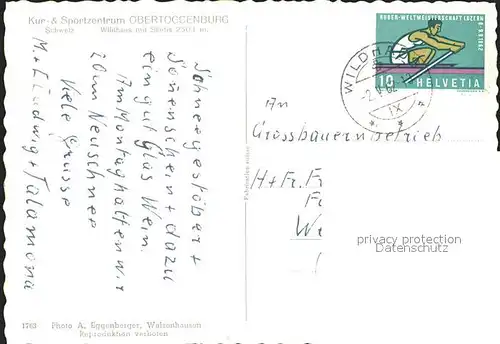 Kur- & Sportzentrum OBERTOGGENBURG
Schweiz Wildhaus mit Säntis 2504 m.
Schneegestöber +
Sonnenschein + dazu
ein gut Glas Wein.
Am Montag hatten wir
20 cm Neuschnee
Viele Grüsse
M. + E. Ludwig + Talamona
1763 Photo A. Eggenberger, Walzenhausen
Reproduktion verboten
RUDER-WELTMEISTERSCHAFT LUZERN
10 HELVETIA
WILDHAUS
IX
An
Grossbauernbetrieb
H + Fr. Fr
privacy protection
www.ansichtskartenversand.com